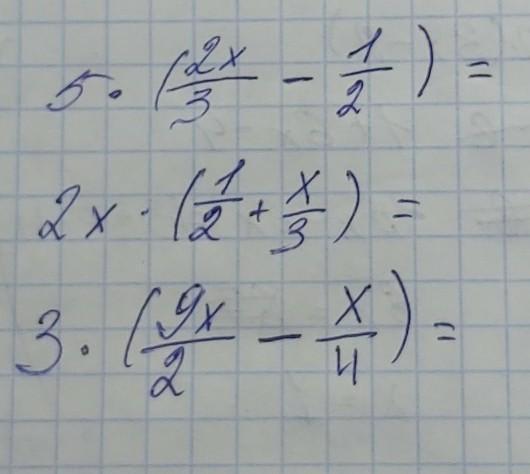 5 · (2x/3 − 1/2) =
2x · (1/2 + x/3) =
3 · (9x/2 − x/4) =